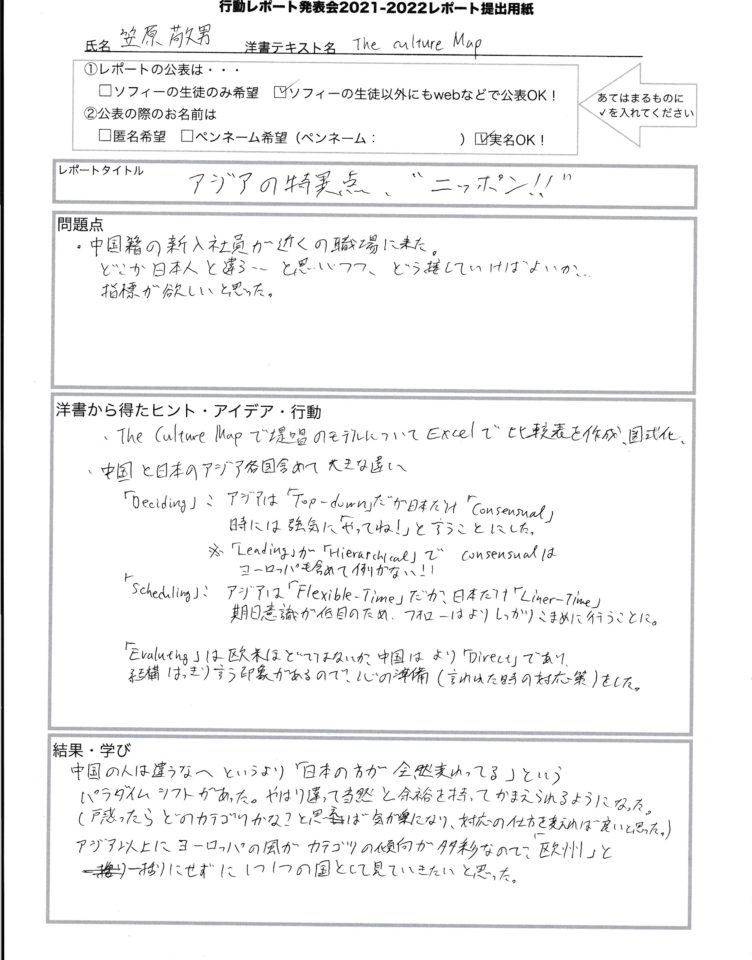 行動レポート発表会2021-2022レポート提出用紙
氏名 笠原 敬男 洋書テキスト名 The culture Map
①レポートの公表は・・・
□ソフィーの生徒のみ希望 ☑ソフィーの生徒以外にもwebなどで公表OK！
②公表の際のお名前は
□匿名希望 □ペンネーム希望（ペンネーム： ）☑実名OK！
あてはまるものに
✓を入れてください
レポートタイトル
アジアの特異点、"ニッポン!!"
問題点
・中国籍の新入社員が近くの職場に来た。
どこか日本人と違う… と思いつつ、どう接していけばよいか…
指標が欲しいと思った。
洋書から得たヒント・アイデア・行動
・The Culture Mapで提唱のモデルについてExcelで比較表を作成、図式化、
・中国と日本のアジア各国含めて大きな違い
「Deciding」： アジアは「Top-down」だが日本だけ「Consensual」
時には強気に「やってね！」と言うことにした。
※「Leading」が「Hierarchical」で consensualは
ヨーロッパも含めて例がない！！
「Scheduling」： アジアは「Flexible-Time」だが、日本だけ「Liner-Time」
期日意識が低目のため、フォローはよりしっかりこまめに行うことに。
「Evaluting」は欧米ほどではないが、中国はより「Direct」であり、
結構はっきり言う印象があるので、心の準備（言われた時の対応策）をした。
結果・学び
中国の人は違うなへ というより「日本の方が全然変わってる」という
パラダイムシフトがあった。やはり違って当然と余裕を持ってかまえられるようになった。
（戸惑ったらどのカテゴリかな？と思えば気が楽になり、対応の仕方を変えれば良いと思った。）
アジア以上にヨーロッパの風がカテゴリの傾向が多彩なので、「欧州」と
一括りにせずに1つ1つの国として見ていきたいと思った。